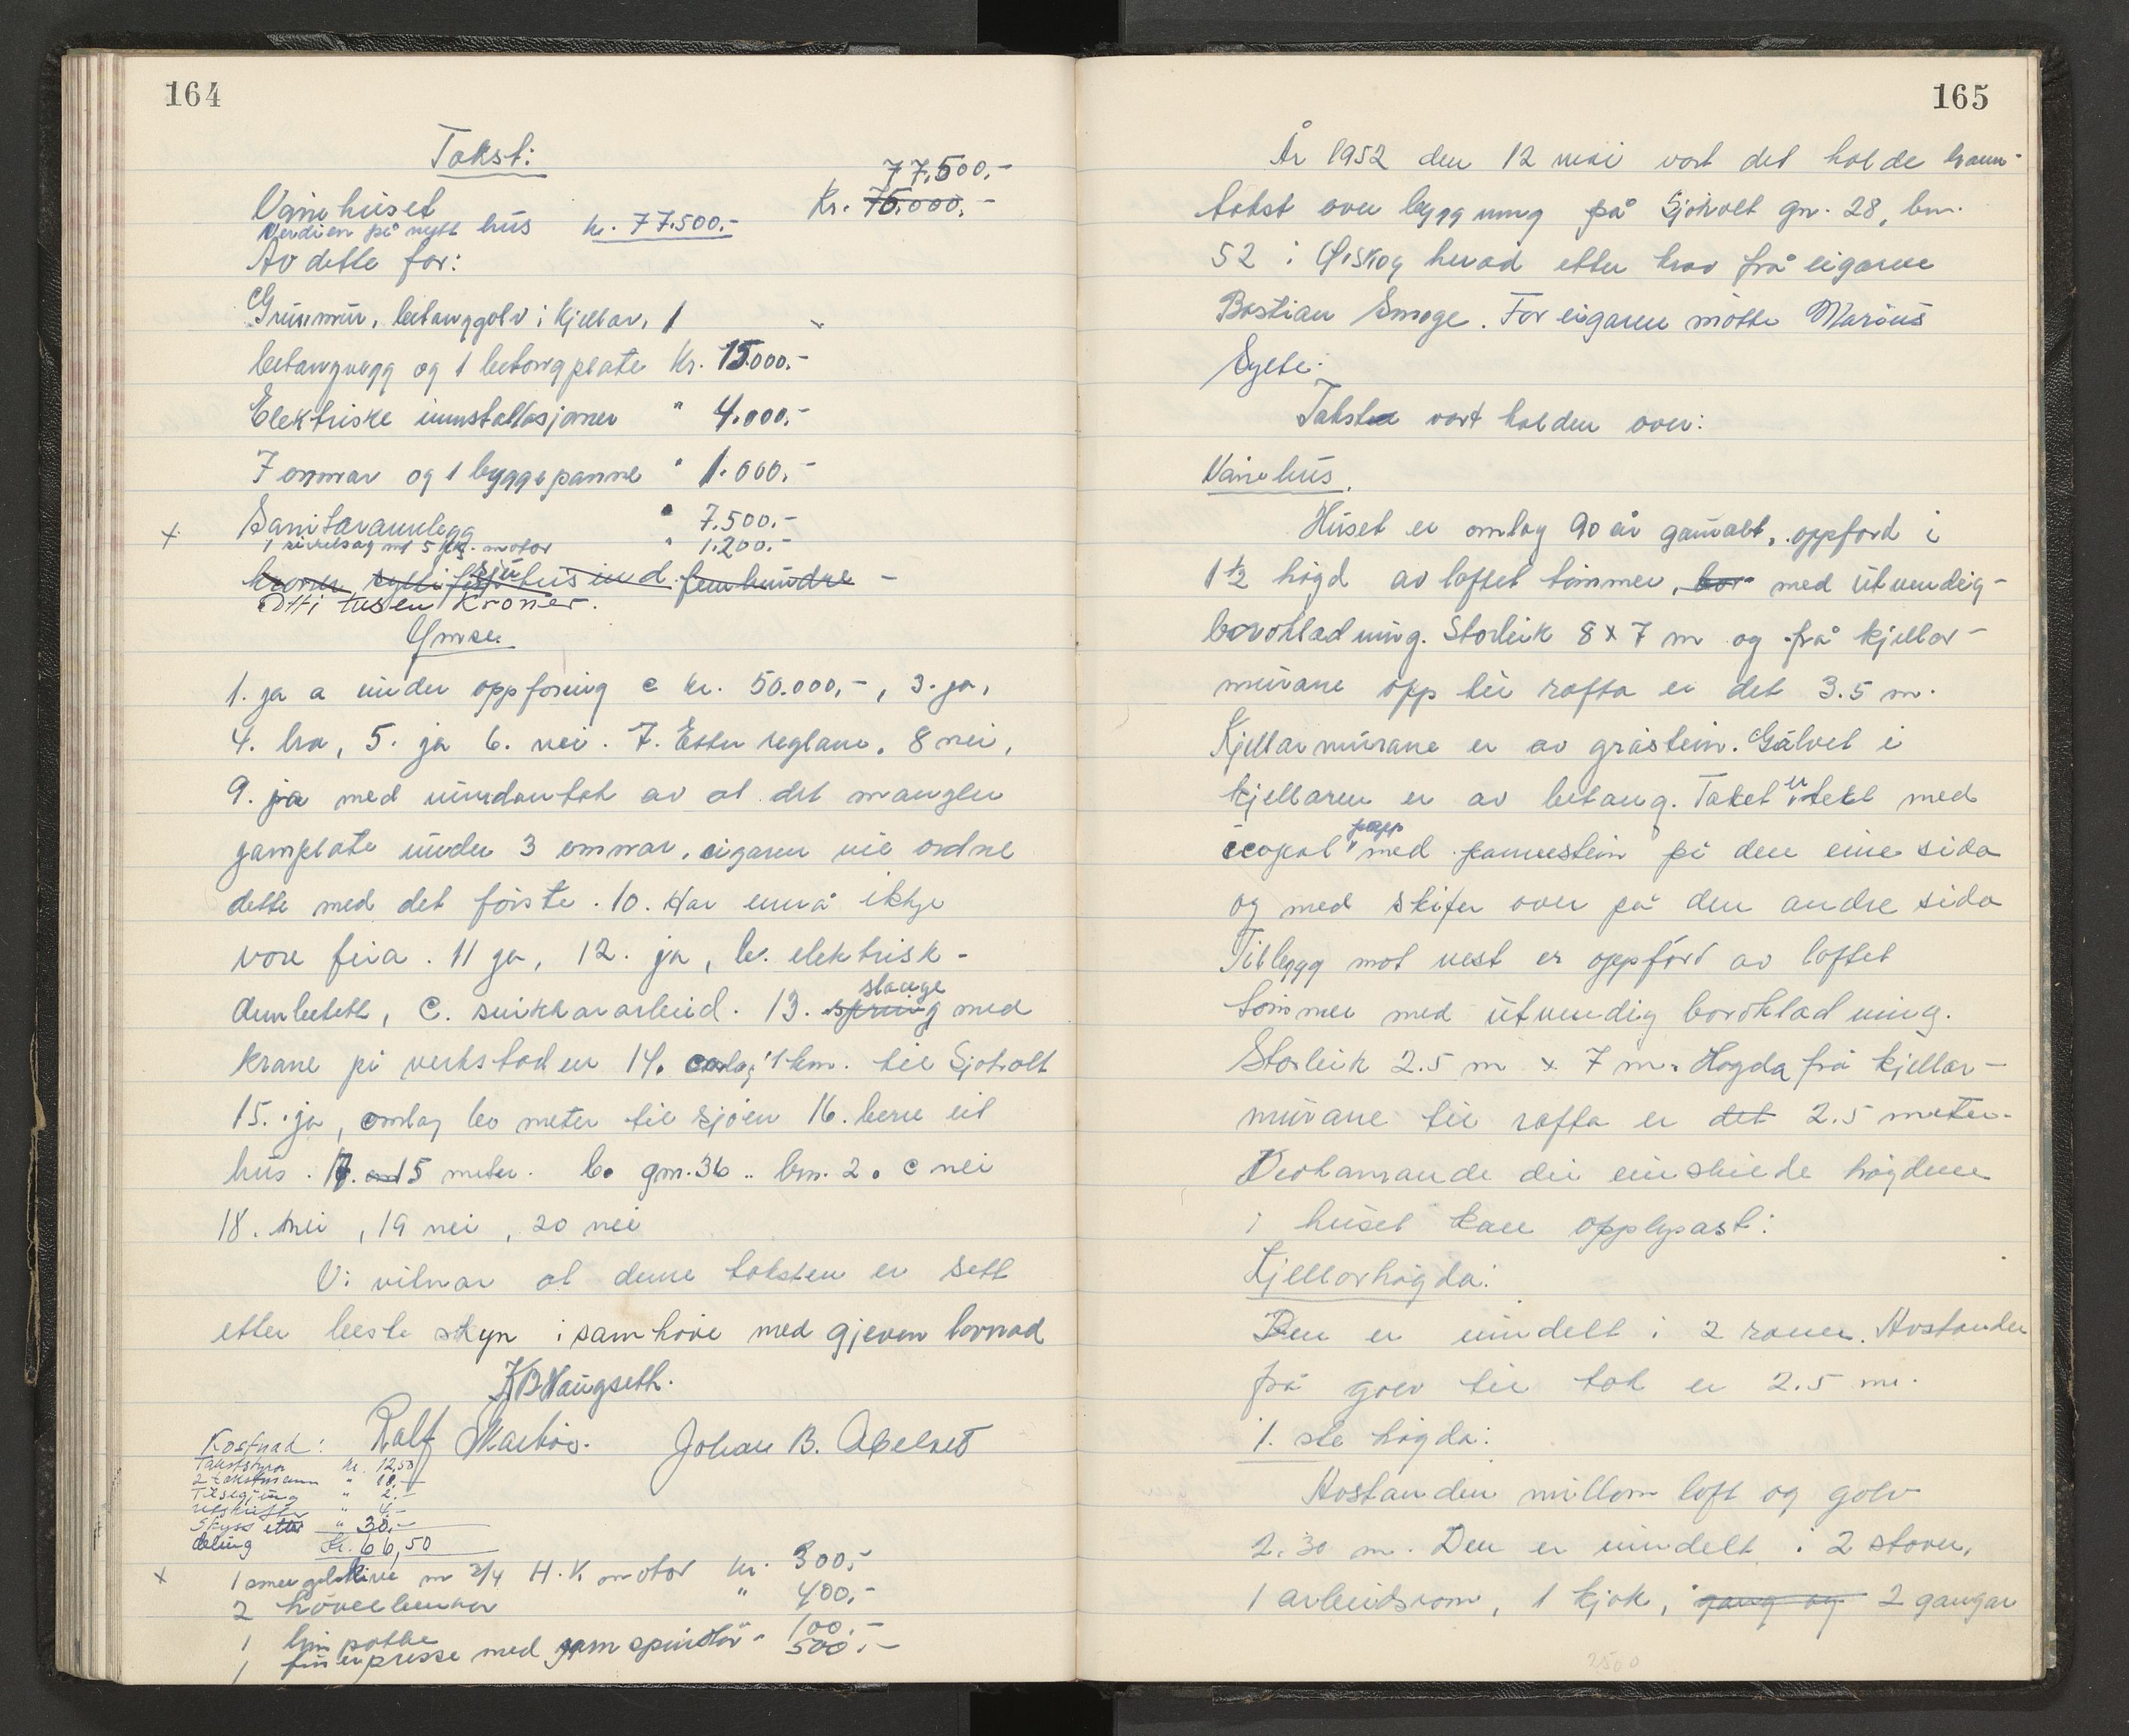 164
Takst:
77.500.-
Vånehuset Kr. 75.000.-
Verdien på nytt hus kr. 77.500.-
Av dette for:
Grunnmur, betonggolv i kjellar, 1
betongvegg og 1 betongplate Kr. 15.000.-
Elektriske innstallasjoner " 4.000.-
7 omnar og 1 byggepanne " 1.000.-
x Sanitæranlegg " 7.500.-
1 sirkelsag m 5 hk. motor " 1.200.-
kroner sytti sju tusind femhundre -
Otti tusen Kroner.
Ymse.
1. ja a under oppföring c kr. 50.000,-, 3. ja,
4. bra, 5. ja 6. nei. 7. Etter reglane. 8 nei,
9. ja med unndantak av at det mangler
jarnplate under 3 omnar, eigaren vil ordne
dette med det förste. 10. Har ennå ikkje
vore feia. 11 ja, 12. ja, b. elektrisk-
drivkraft, c. snikkararbeid. 13. spring slange med
krane på verkstaden 14. omlag 1 km. til Sjøholt
15. ja, omlag 60 meter til sjøen 16. berre eit
hus. 17. a 15 meter. b. gnr. 36 .. bnr. 2. c nei
18. nei, 19 nei, 20 nei
Vi vitnar at denne taksten er sett
etter beste skyn i samhöve med gjeven lovnad
K B Haugseth.
Ralf Skarbö. Johan B. Abelset
Kostnad:
Takststyrar kr. 12,50
2 takstmenn " 18,-
Tilsegjing " 2.-
utskrift " 4.-
Skyss etter " 30,-
deling Kr. 66,50
x 1 smergelskive m 3/4 H.K. motor kr. 300,-
2 hövelbenkar " 400,-
1 limpotte " 100.-
1 finerpresse med jarnspindlar " 500.-
165
År 1952 den 12 mai vart det halde brann-
takst over bygg ning på Sjøholt gn. 28, bnr.
52 i Ørskog herad etter krav frå eigaren
Bastian Smoge. For eigaren møtte Marius
Sylte.
Taksten vart halden over:
Vånehus.
Huset er omlag 90 år gamalt, oppförd i
1 1/2 högd av laftet tömmer, bor med utvendig-
bordkladning. Storleik 8 x 7 m og frå kjellar-
murane opp til rafta er det 3.5 m.
Kjellarmurane er av gråstein. Gålvet i
kjellaren er av betong. Taket er tekt med
icopal papp med pannestein på den eine sida
og med skifer over på den andre sida
Tilbygg mot vest er oppfört av laftet
tömmer med utvendig bordkladning.
Storleik 2.5 m x 7 m. Högda frå kjellar-
murane til rafta er det 2.5 meter.
Vedkomande dei einskilde högdene
i huset kan opplysast:
Kjellarhögda:
Den er inndelt i 2 romm. Avstanden
frå golv til tak er 2.5 m.
1. ste högda:
Avstanden millom loft og golv
2.30 m. Den er inndelt i 2 stover,
1 arbeidsrom, 1 kjøk, gang og 2 gangar
2500